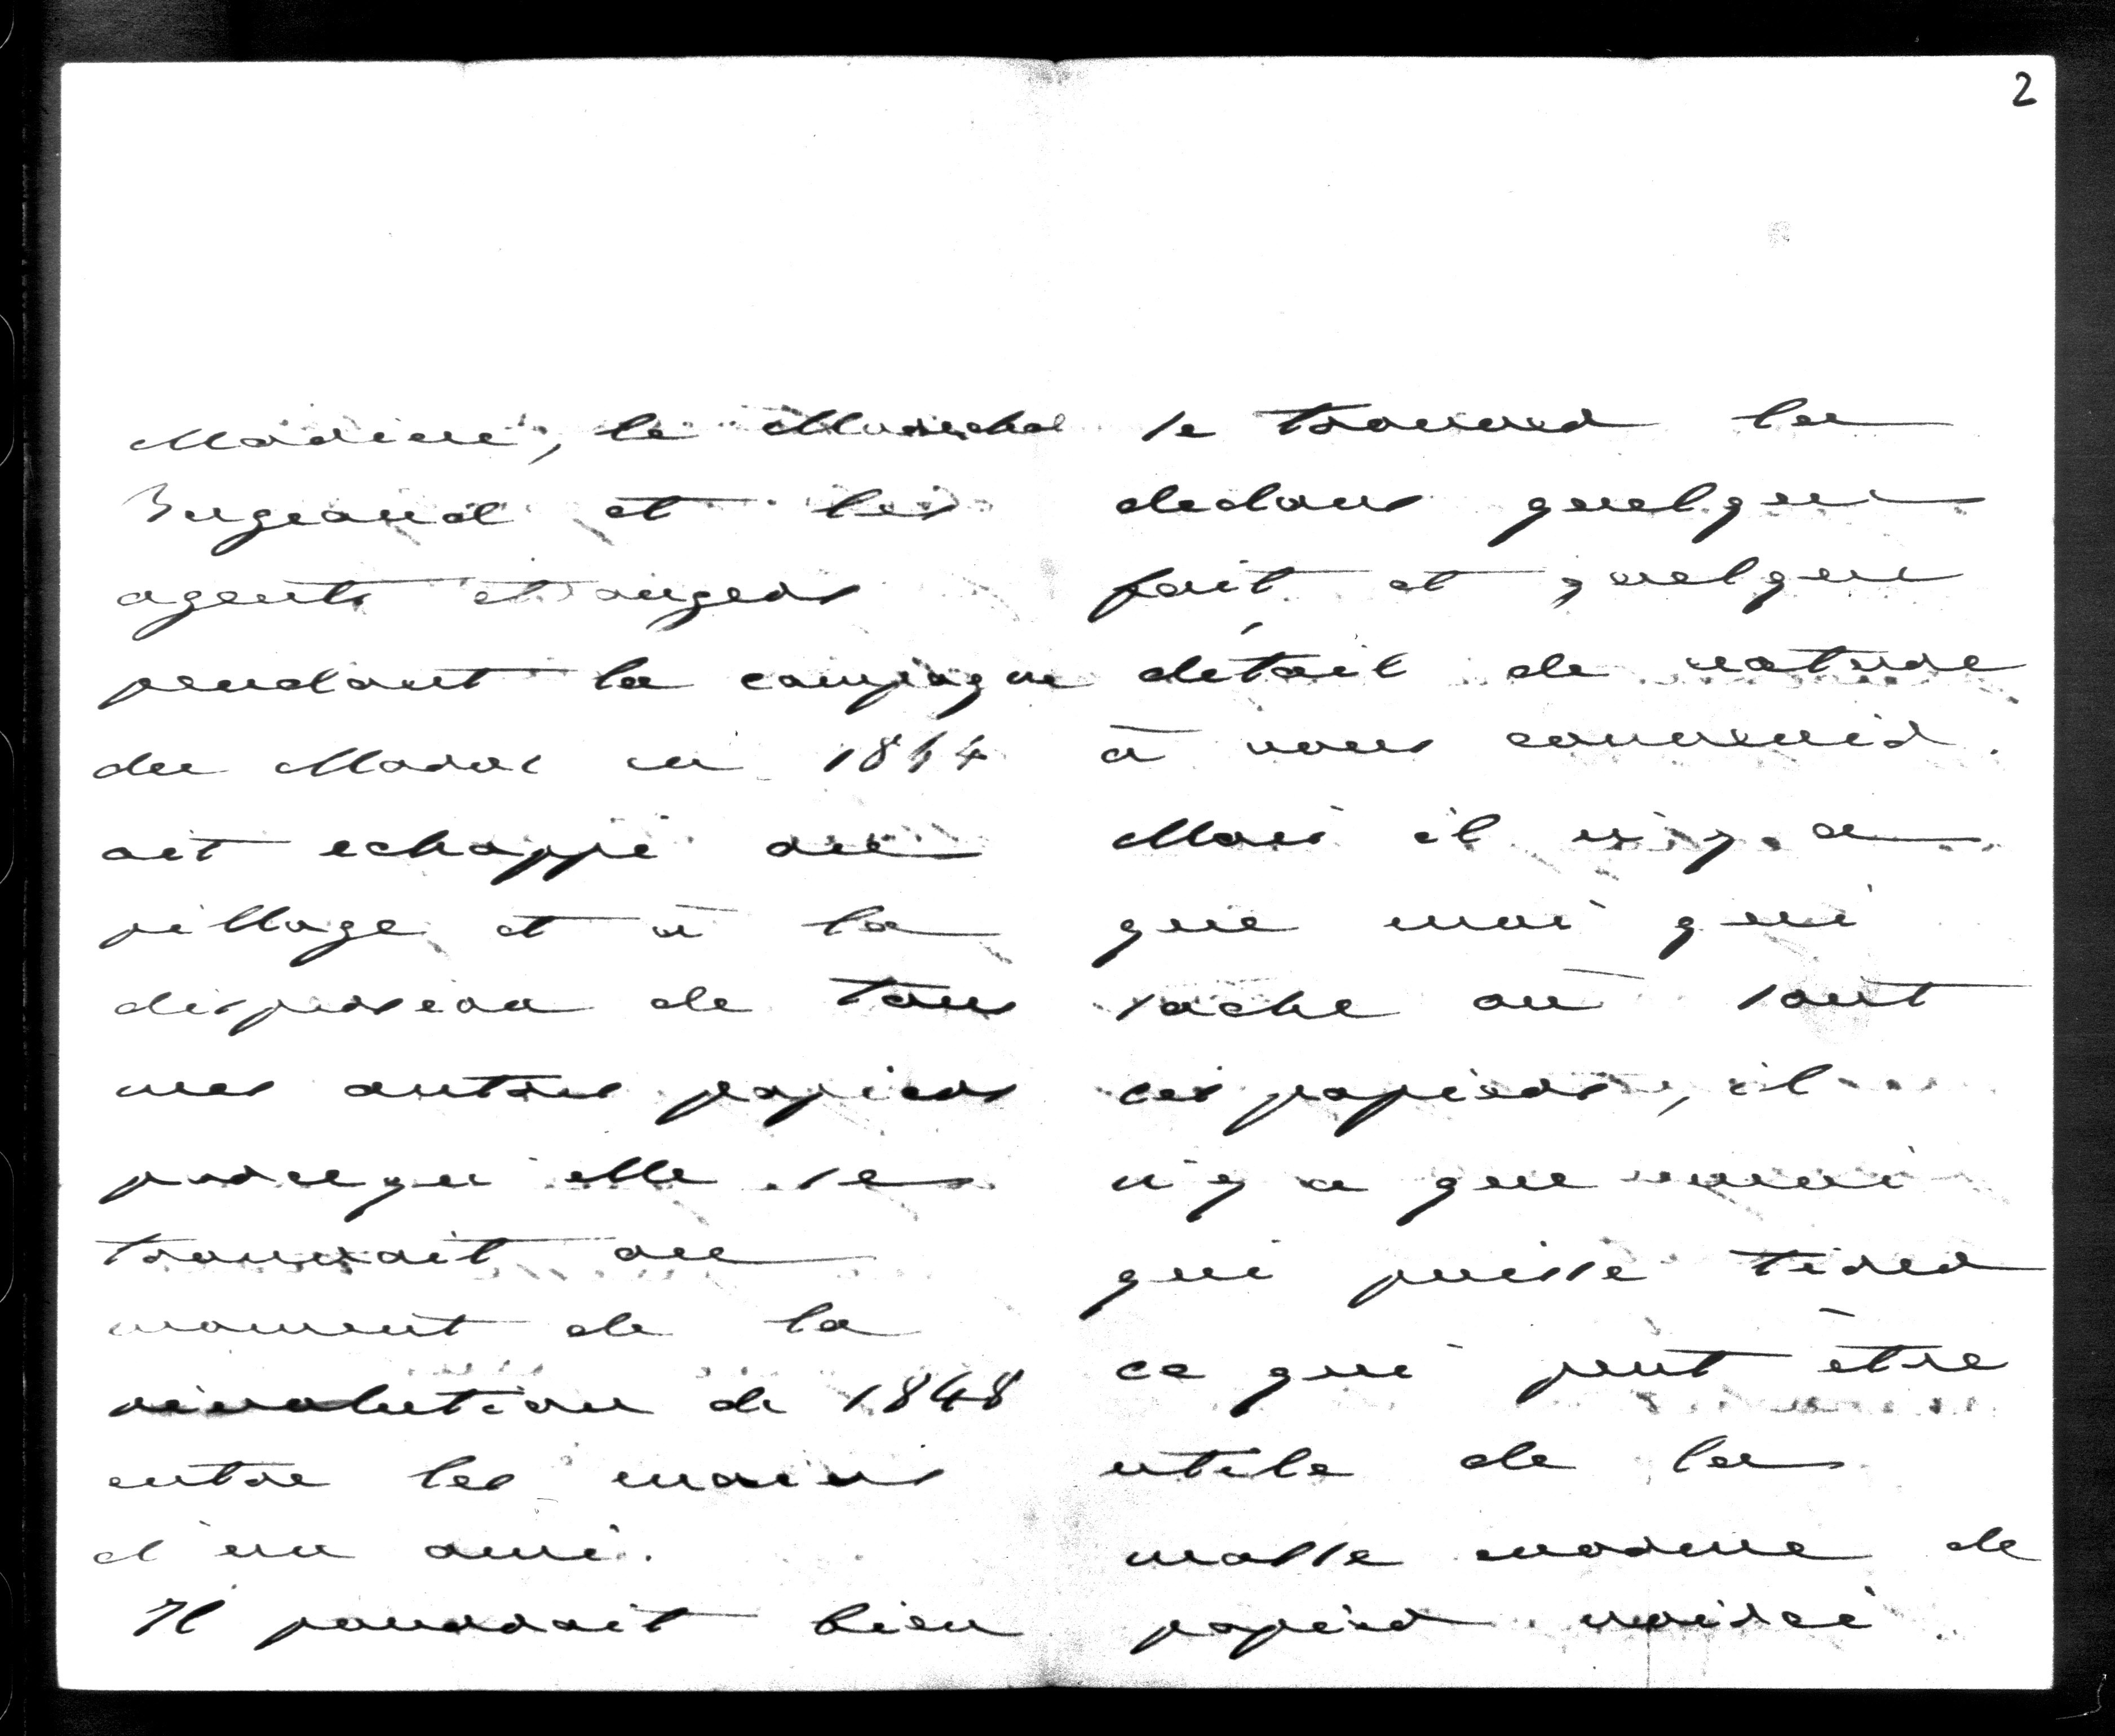 2
Marine, le Marechal
Bugeaud et les
agents etrangers
pendant la campagne
du Maroc en 1844
ait echappé au
pillage et à la
dispersion de tous
mes autres papiers
parcequ'elle se
trouvait au
moment de la
révolution de 1848
entre les mains
d'un ami.
Il pourrait bien
se trouver la
dedans quelque
fait et quelque
détail de nature
à vous convenir.
Mais il n'y a
que moi qui
sache où sont
ces papiers, il
n'y a que moi
qui puisse tirer
ce qui peut être
utile de la
masse énorme de
papier noirci.